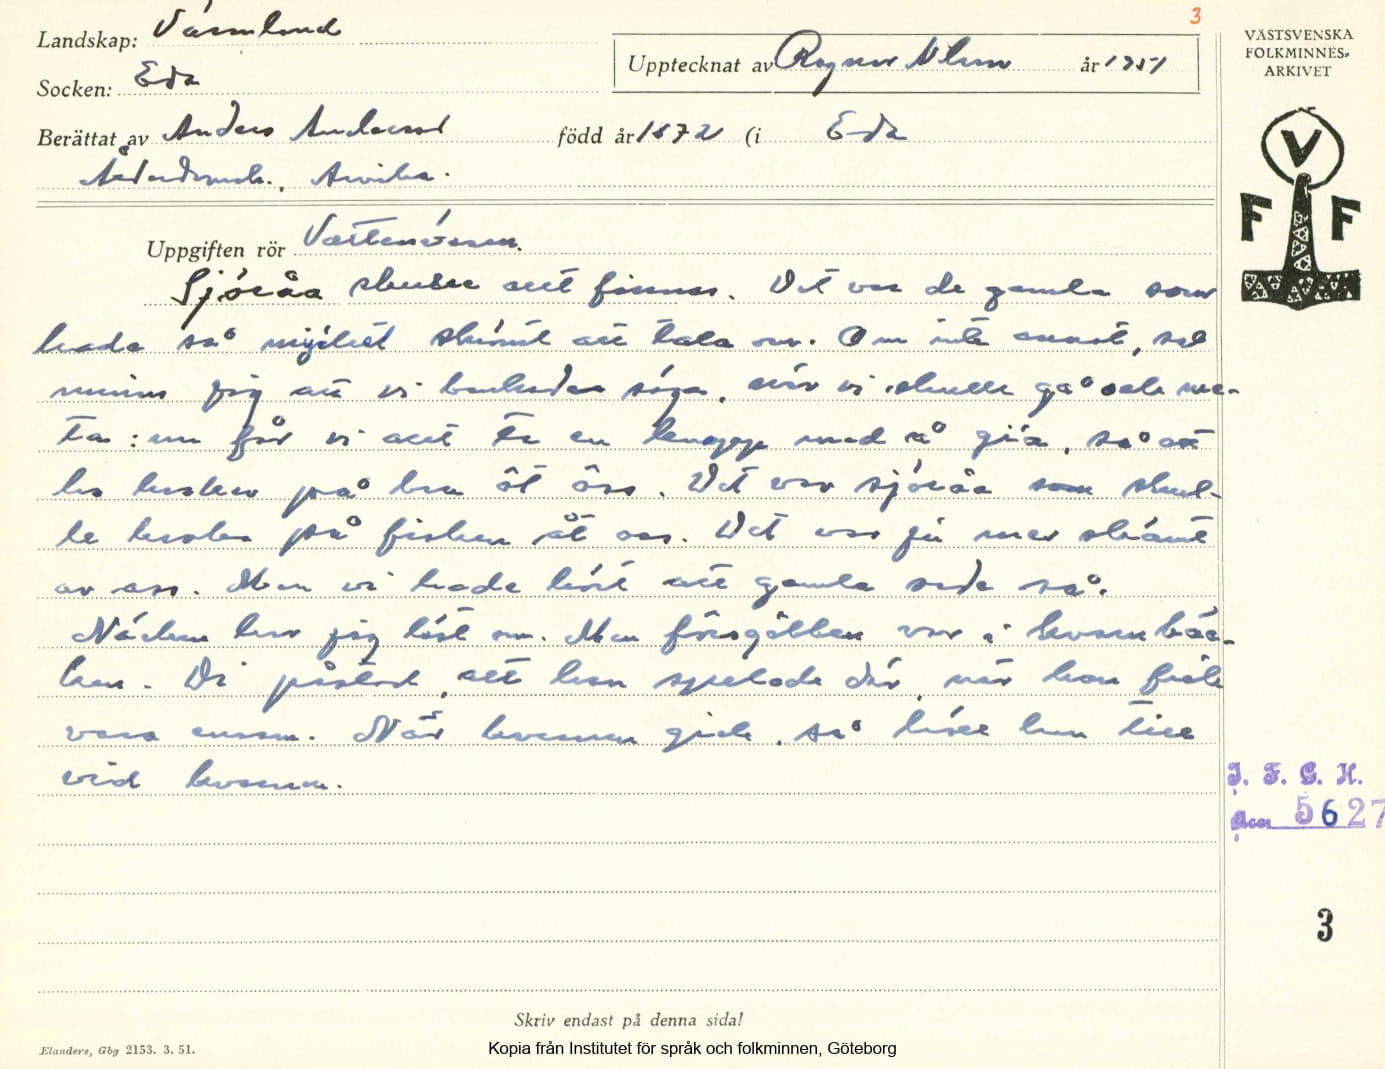 3
Landskap: Värmland
Socken: Eda
Upptecknat av Ragnar Nilsson år 1951
VÄSTSVENSKA
FOLKMINNES-
ARKIVET
V
F F
Berättat av Anders Andersson född år 1872 (i Eda
Arvika.
Uppgiften rör Vattenväsen.
Sjöråa skulle det finnas. Det var de gamla som
hade så mycket skämt att tala om. Om inte annat, så
minns jag att vi brukade säga, när vi skulle gå och me-
ta: nu får vi ta en med å , så att
ho på åt oss. Det var sjöråa som skul-
le på fisken åt oss. Det var ju mer skämt
av oss. Men vi hade hört att gamla sade så.
Näcken har jag hört om. Men forsgubben var i kvarnbäc-
ken. Di påstod, att han spelade där, när han fick
vara ensam. När kvarnen gick, så höll han till
vid kvarnen.
I. F. G. H.
Acc 5627
3
Skriv endast på denna sida!
Elanders, Gbg 2153. 3. 51.
Kopia från Institutet för språk och folkminnen, Göteborg